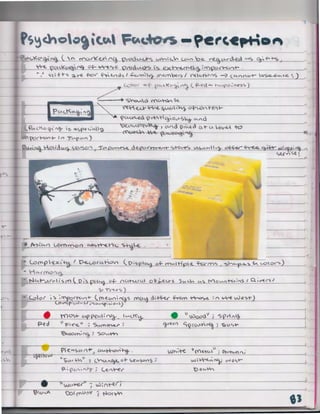 Psychological Factors - Perception
Packaging (In marketing products which can be regarded → gifts,
the packaging of these products is extremely important
∵ Gifts are for friends / family members / relations → cannot lose face!)
Color of packaging (
Should match &
reflect the quality of content
Packaging
Packed prestigiously and
beautifully, and priced at a level to
match the packaging
(Packaging is especially
important in Japan)
During Holiday season, Japanese department stores usually offer free gift wrapping
service!
Asian common aesthetic style.
Complexity / Decoration (Display of multiple forms, shapes & colors)
Harmony
Naturalism (Display of natural objects such as Mountains / Rivers/
Trees)
Color is important (meanings may differ from those in the West)
Most appealing, Lucky
Red "Fire"; Summer;
Blooming; South
"Wood"; Spring
green Sprouting; East
Pleasant, authority
yellow "Earth"; Change of seasons;
Ripening; Center
White "metal"; Autumn;
Withering; West
Death
"Water"; Winter;
Black Dormant; North
83